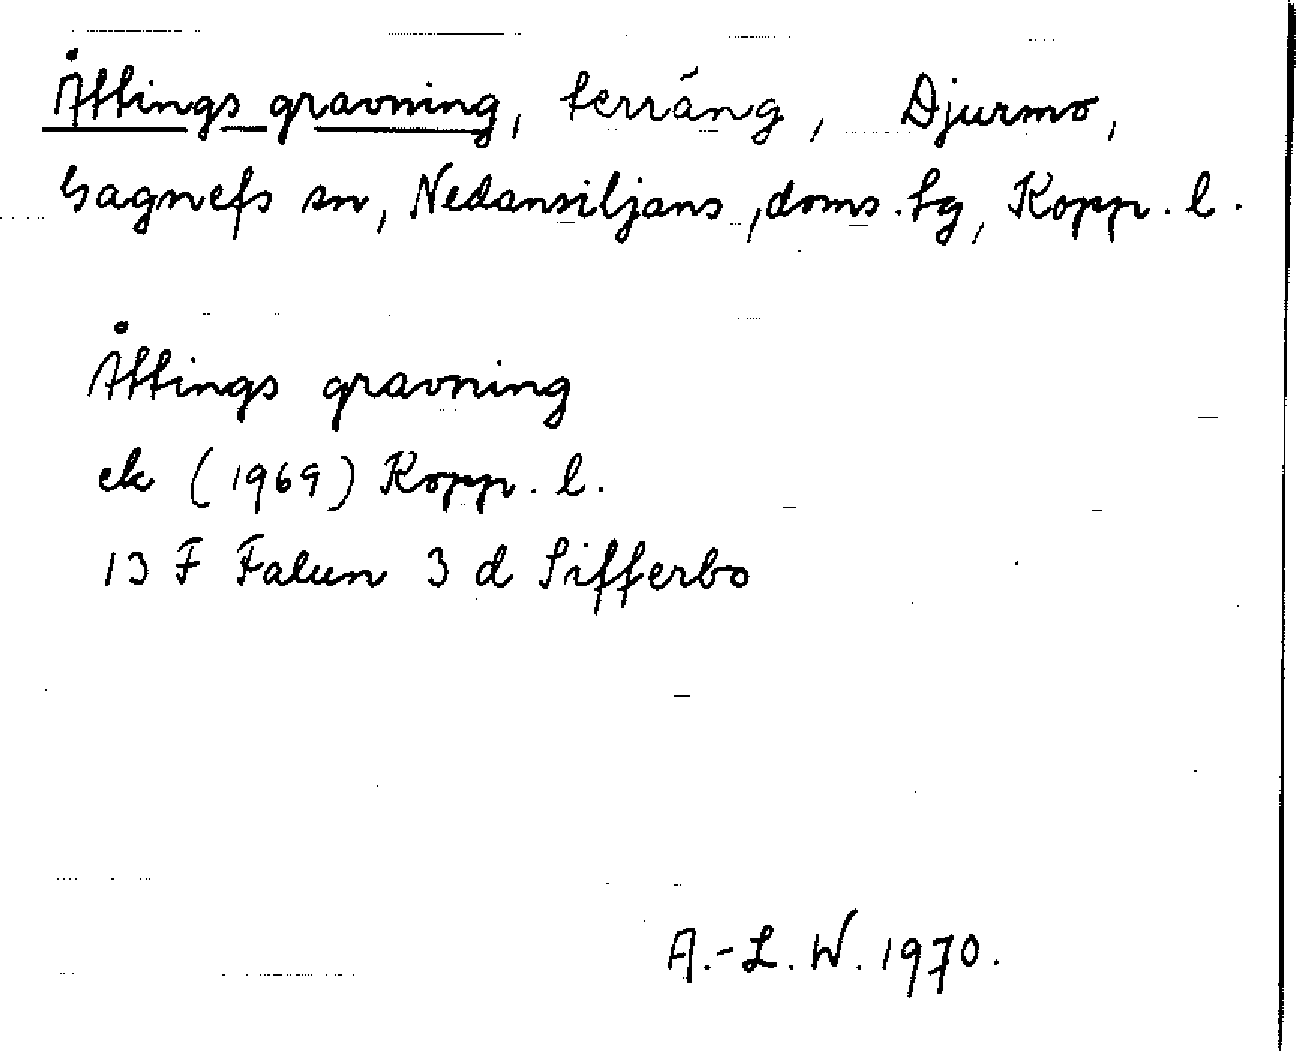 Åttings gravning, terräng, Djurmo,
Gagnefs sn, Nedansiljans, doms.tg, Kopp. l.
Åttings gravning
ek (1969) Kopp. l.
13 F Falun 3 d Sifferbo
A.-L. W. 1970.